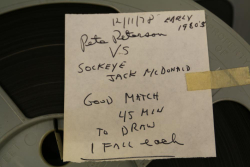 12/11/78 EARLY
1980'S
Pete Peterson
VS
SOCKEYE
JACK McDONALD
GOOD MATCH
45 MIN
TO DRAW
1 FALL each